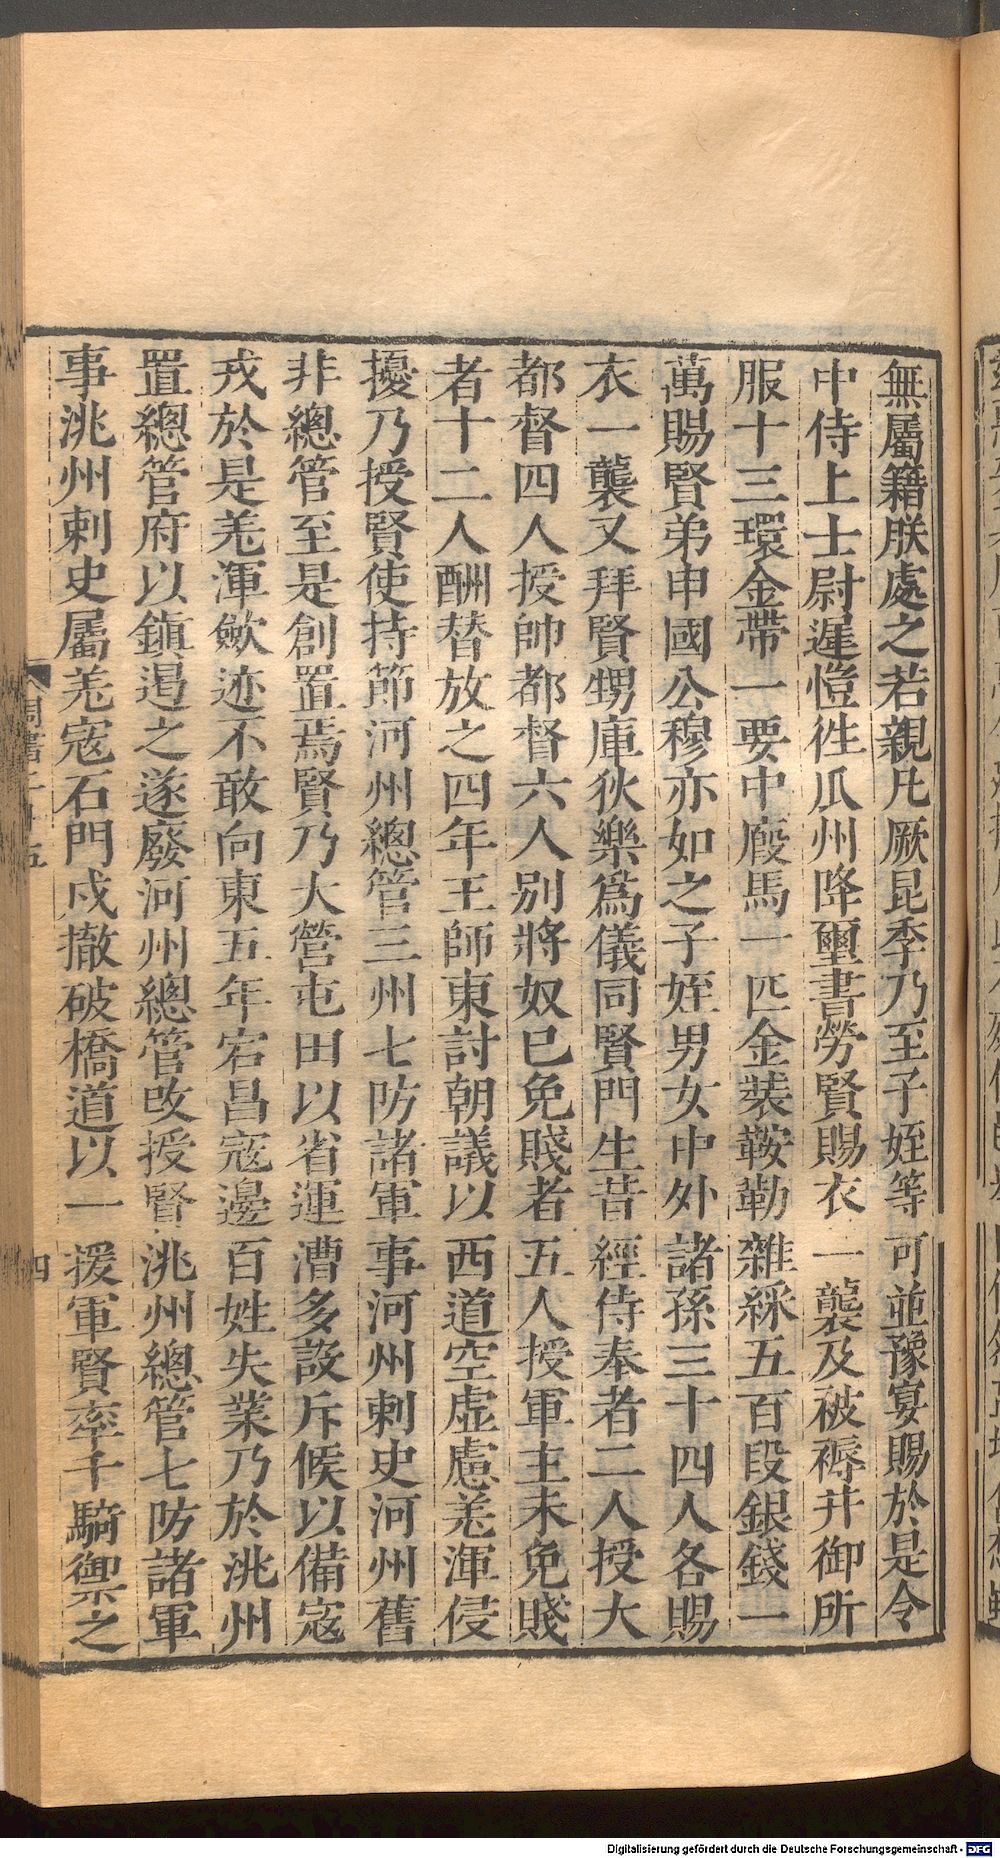 無屬籍朕處之若親凡厥昆季乃至子姪等可並豫宴賜於是令
中侍上士尉遲愷徃瓜州降璽書勞賢賜衣一襲及被褥并御所
服十三環金帶一要中廄馬一匹金裝鞍勒雜綵五百段銀錢一
萬賜賢弟申國公穆亦如之子姪男女中外諸孫三十四人各賜
衣一襲又拜賢甥庫狄樂爲儀同賢門生昔經侍奉者二人授大
都督四人授帥都督六人別將奴已免賤者五人授軍主未免賤
者十二人酬替放之四年王師東討朝議以西道空虛慮羌渾侵
擾乃授賢使持節河州總管三州七防諸軍事河州刺史河州舊
非總管至是創置焉賢乃大營屯田以省運漕多設斥候以備寇
戎於是羌渾斂迹不敢向東五年宕昌寇邊百姓失業乃於洮州
置總管府以鎭遏之遂廢河州總管改授賢洮州總管七防諸軍
事洮州刺史屬羌寇石門戍撤破橋道以一援軍賢率千騎禦之
周書二十五
四
Digitalisierung gefördert durch die Deutsche Forschungsgemeinschaft - DFG